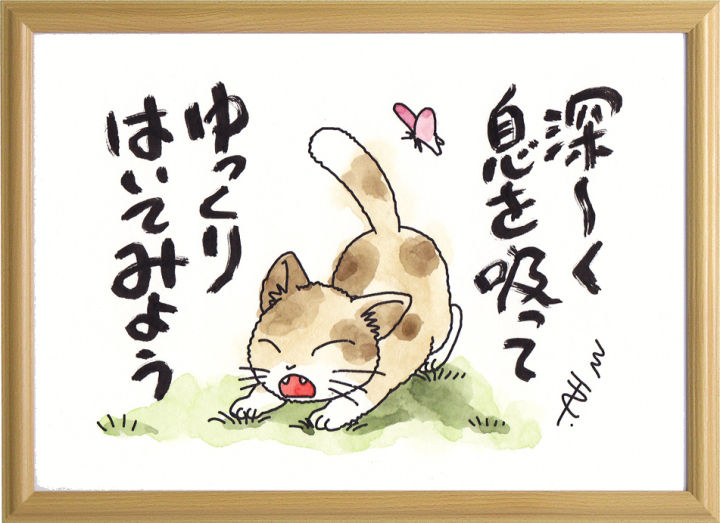 深～く
息を吸って
ゆっくり
はいてみよう